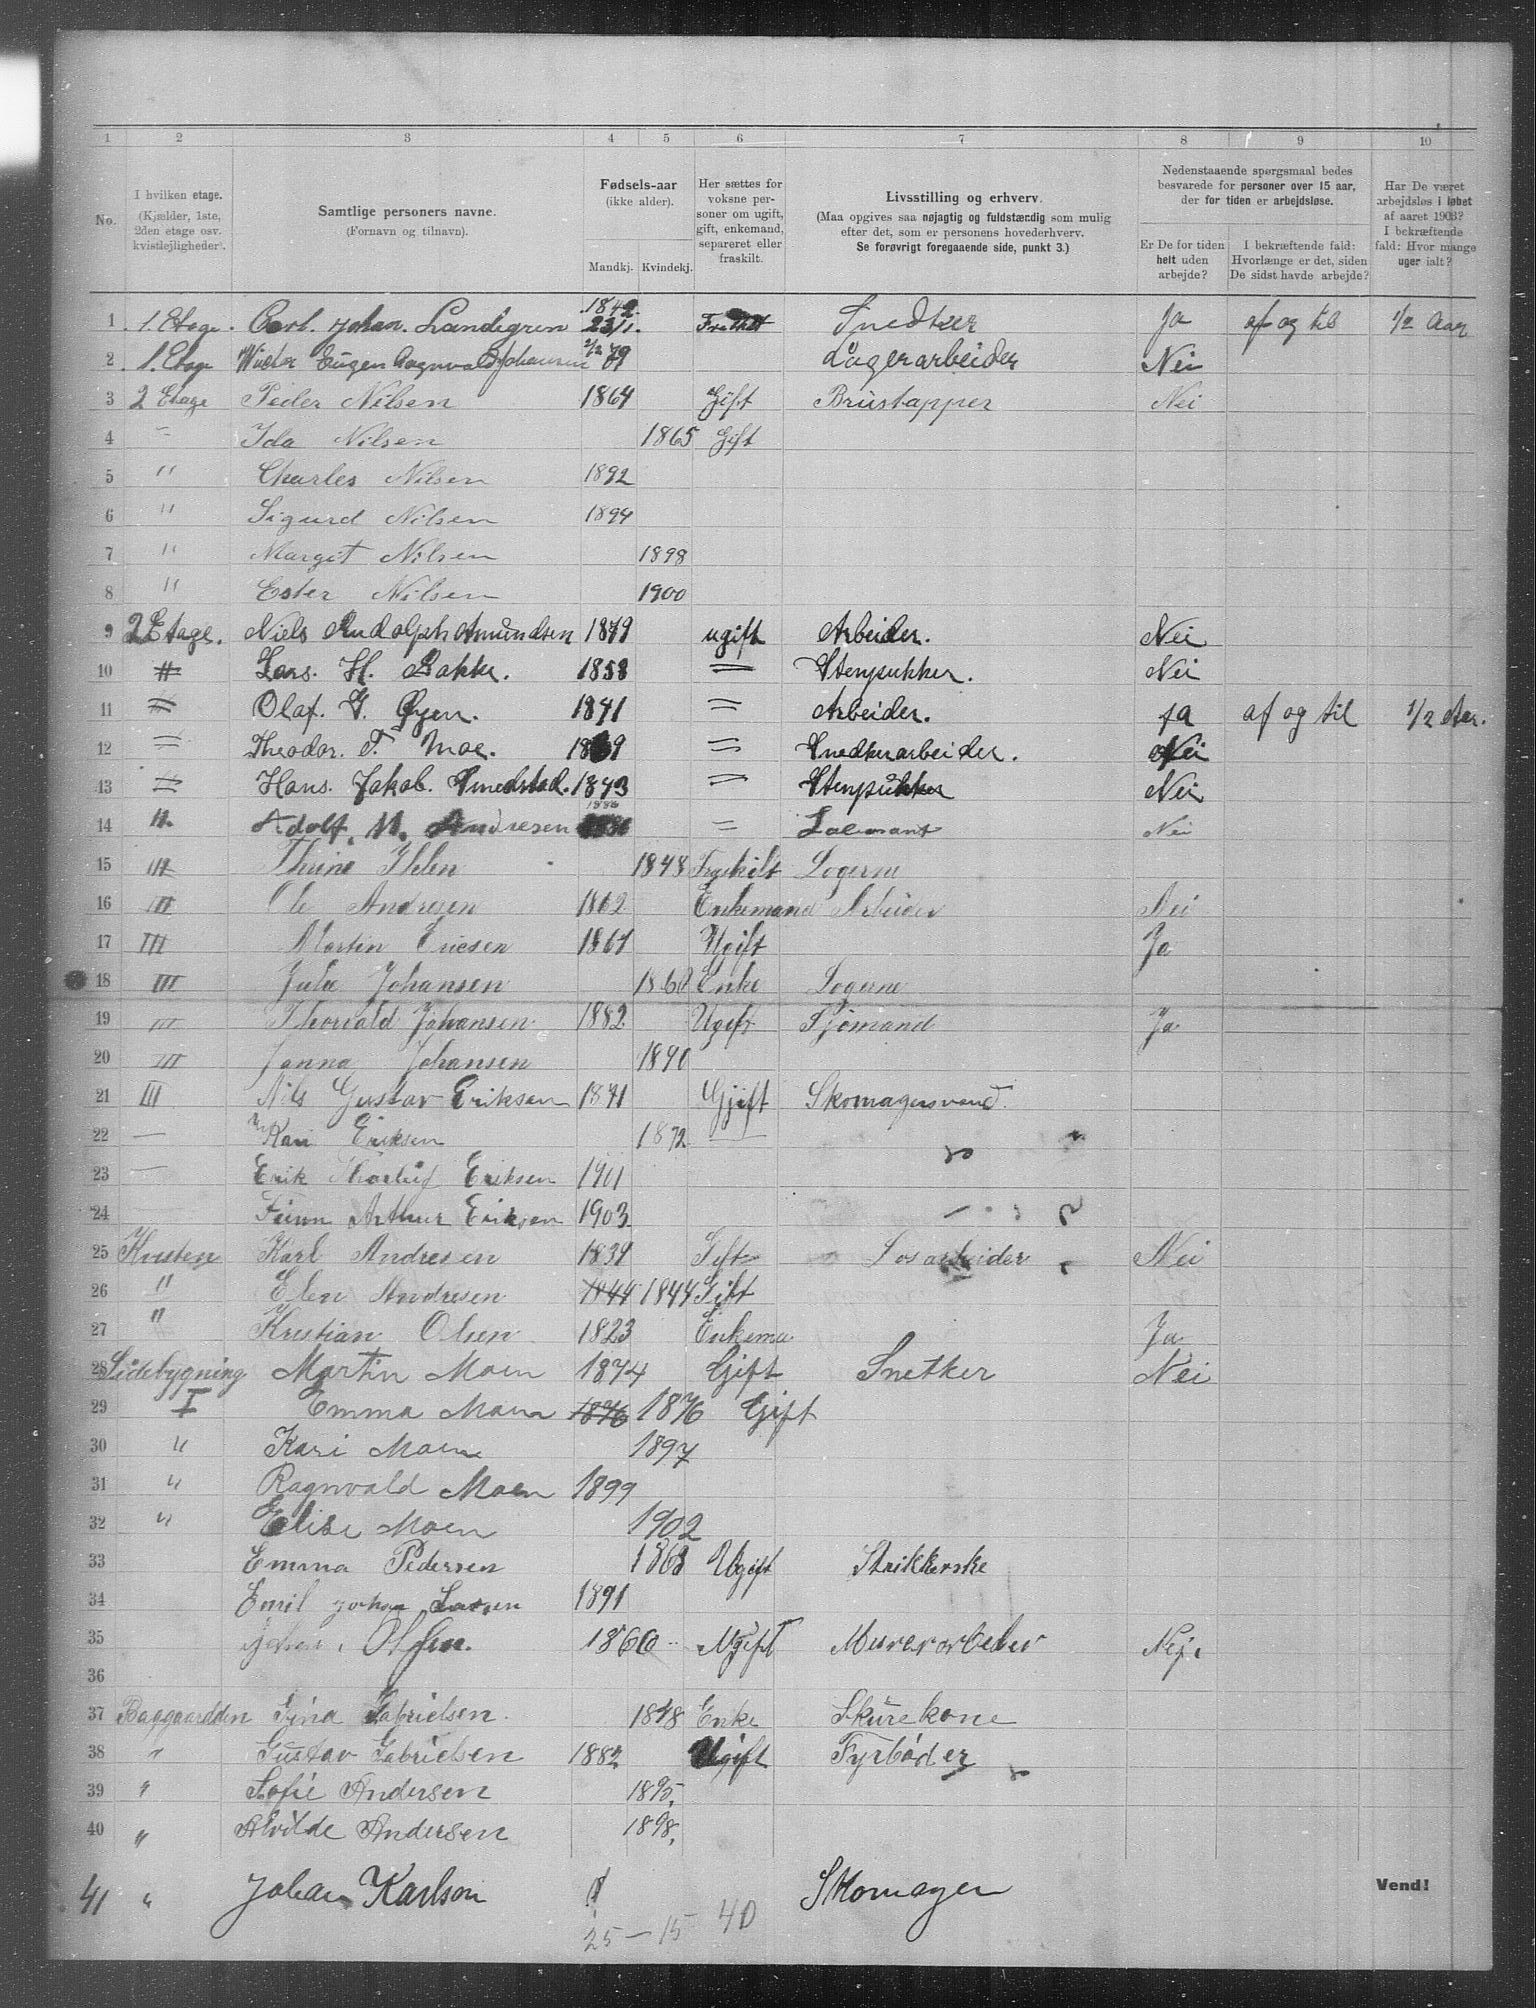 1 2 3 4 5 6 7 8 9 10
No. I hvilken etage. (Kjælder, 1ste, 2den etage osv. kvistlejligheder). Samtlige personers navne. (Fornavn og tilnavn). Fødsels-aar (ikke alder). Mandkj. Kvindekj. Her sættes for voksne personer om ugift, gift, enkemand, separeret eller fraskilt. Livsstilling og erhverv. (Maa opgives saa nøjagtig og fuldstændig som mulig efter det, som er personens hovederhverv. Se forøvrigt foregaaende side, punkt 3.) Nedenstaaende spørgsmaal bedes besvarede for personer over 15 aar, der for tiden er arbejdsløse. Er De for tiden helt uden arbejde? I bekræftende fald: Hvorlænge er det, siden De sidst havde arbejde? Har De været arbejdsløs i løbet af aaret 1903? I bekræftende fald: Hvor mange uger ialt?
1 1. Etage. Carl. Johan. Landegren 1842 23/1. Snedker Ja af og til 1/2 Aar
2 1. Etage Eugen Ragnvald Johansen 79 Lagerarbeider Nei
3 2 Etage Peder Nilsen 1864 Gift Brustapper Nei
4 " Ida Nilsen 1865 Gift
5 " Charles Nilsen 1892
6 " Sigurd Nilsen 1894
7 " Margit Nilsen 1898
8 " Ester Nilsen 1900
9 2 Etage. Niels Rudolph Amundsen 1879 ugift Arbeider. Nei
10 " Lars. H. Bakke. 1858 " Stenpukker. Nei
11 " Olaf. G. Øyen. 1841 " Arbeider. ja af og til 1/2 Aar.
12 " Theodor. T. Moe. 1869 " Snedkerarbeider. Nei
13 " Hans. Jakob. Smedstad. 1843 " Stenpukker Nei
14 " Adolf. M. Andresen 1886 " Nei
15 III Thrine Ihlen 1848 Fraskilt Logerne
16 III Ole Andresen 1862 Enkemand Arbeider Nei
17 III Martin Ericsen 1867 Ugift Ja
18 III Julie Johansen 1860 Enke Logerne
19 III Thorvald Johansen 1882 Ugift Sjömand Ja
20 III Janna Johansen 1890
21 III Nils Gustav Eriksen 1871 Gjift Skomagersvend.
22 — Kari Eriksen 1872 —
23 — Erik Thorleif Eriksen 1901
24 Finn Arthur Eriksen 1903
25 Kvisten Karl Andresen 1839 Gift Losarbeider Nei
26 " Elen Andresen 1844 1844 Gift
27 " Kristian Olsen 1823 Enkema Ja
28 Sidebygning Martin Moen 1874 Gift Snetker Nei
29 I Emma Moen 1876 1876 Gift
30 " Kari Moen 1897
31 " Ragnvald Moen 1899
32 " Elise Moen 1902
33 Emma Pedersen 1868 Ugift Strikkerske
34 Emil Johan Larsen 1891
35 Johan. Olsen. 1860 Ugift Murerarbeder Nej.
36
37 Baggaardden Gina Gabrielsen. 1848 Enke Skurekone
38 " Gustav Gabrielsen 1882 Ugift Fyrböder
39 " Sofie Andersen 1895.
40 " Alvilde Andersen 1898.
41 " Johan Karlson Skomager Vend!
25 — 15 40